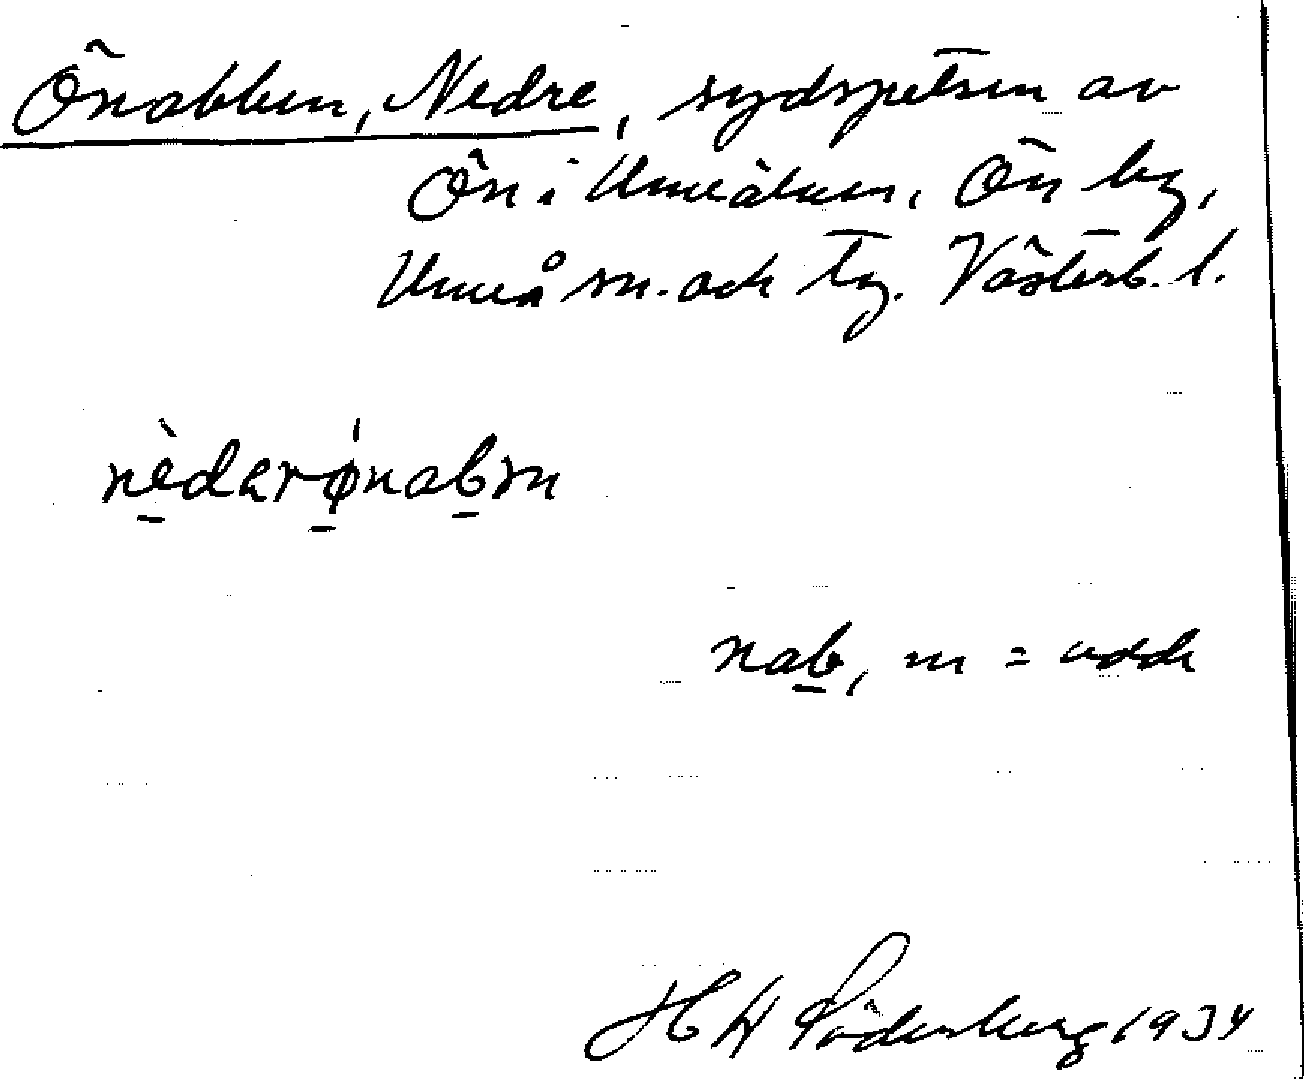 Önabben, Nedre, sydspetsen av
Ön i Umeälven, Ön by,
Umeå sn. och tg. Västerb. l.
nèdærǿnabm
nab, m = udde
H W Söderberg 1934